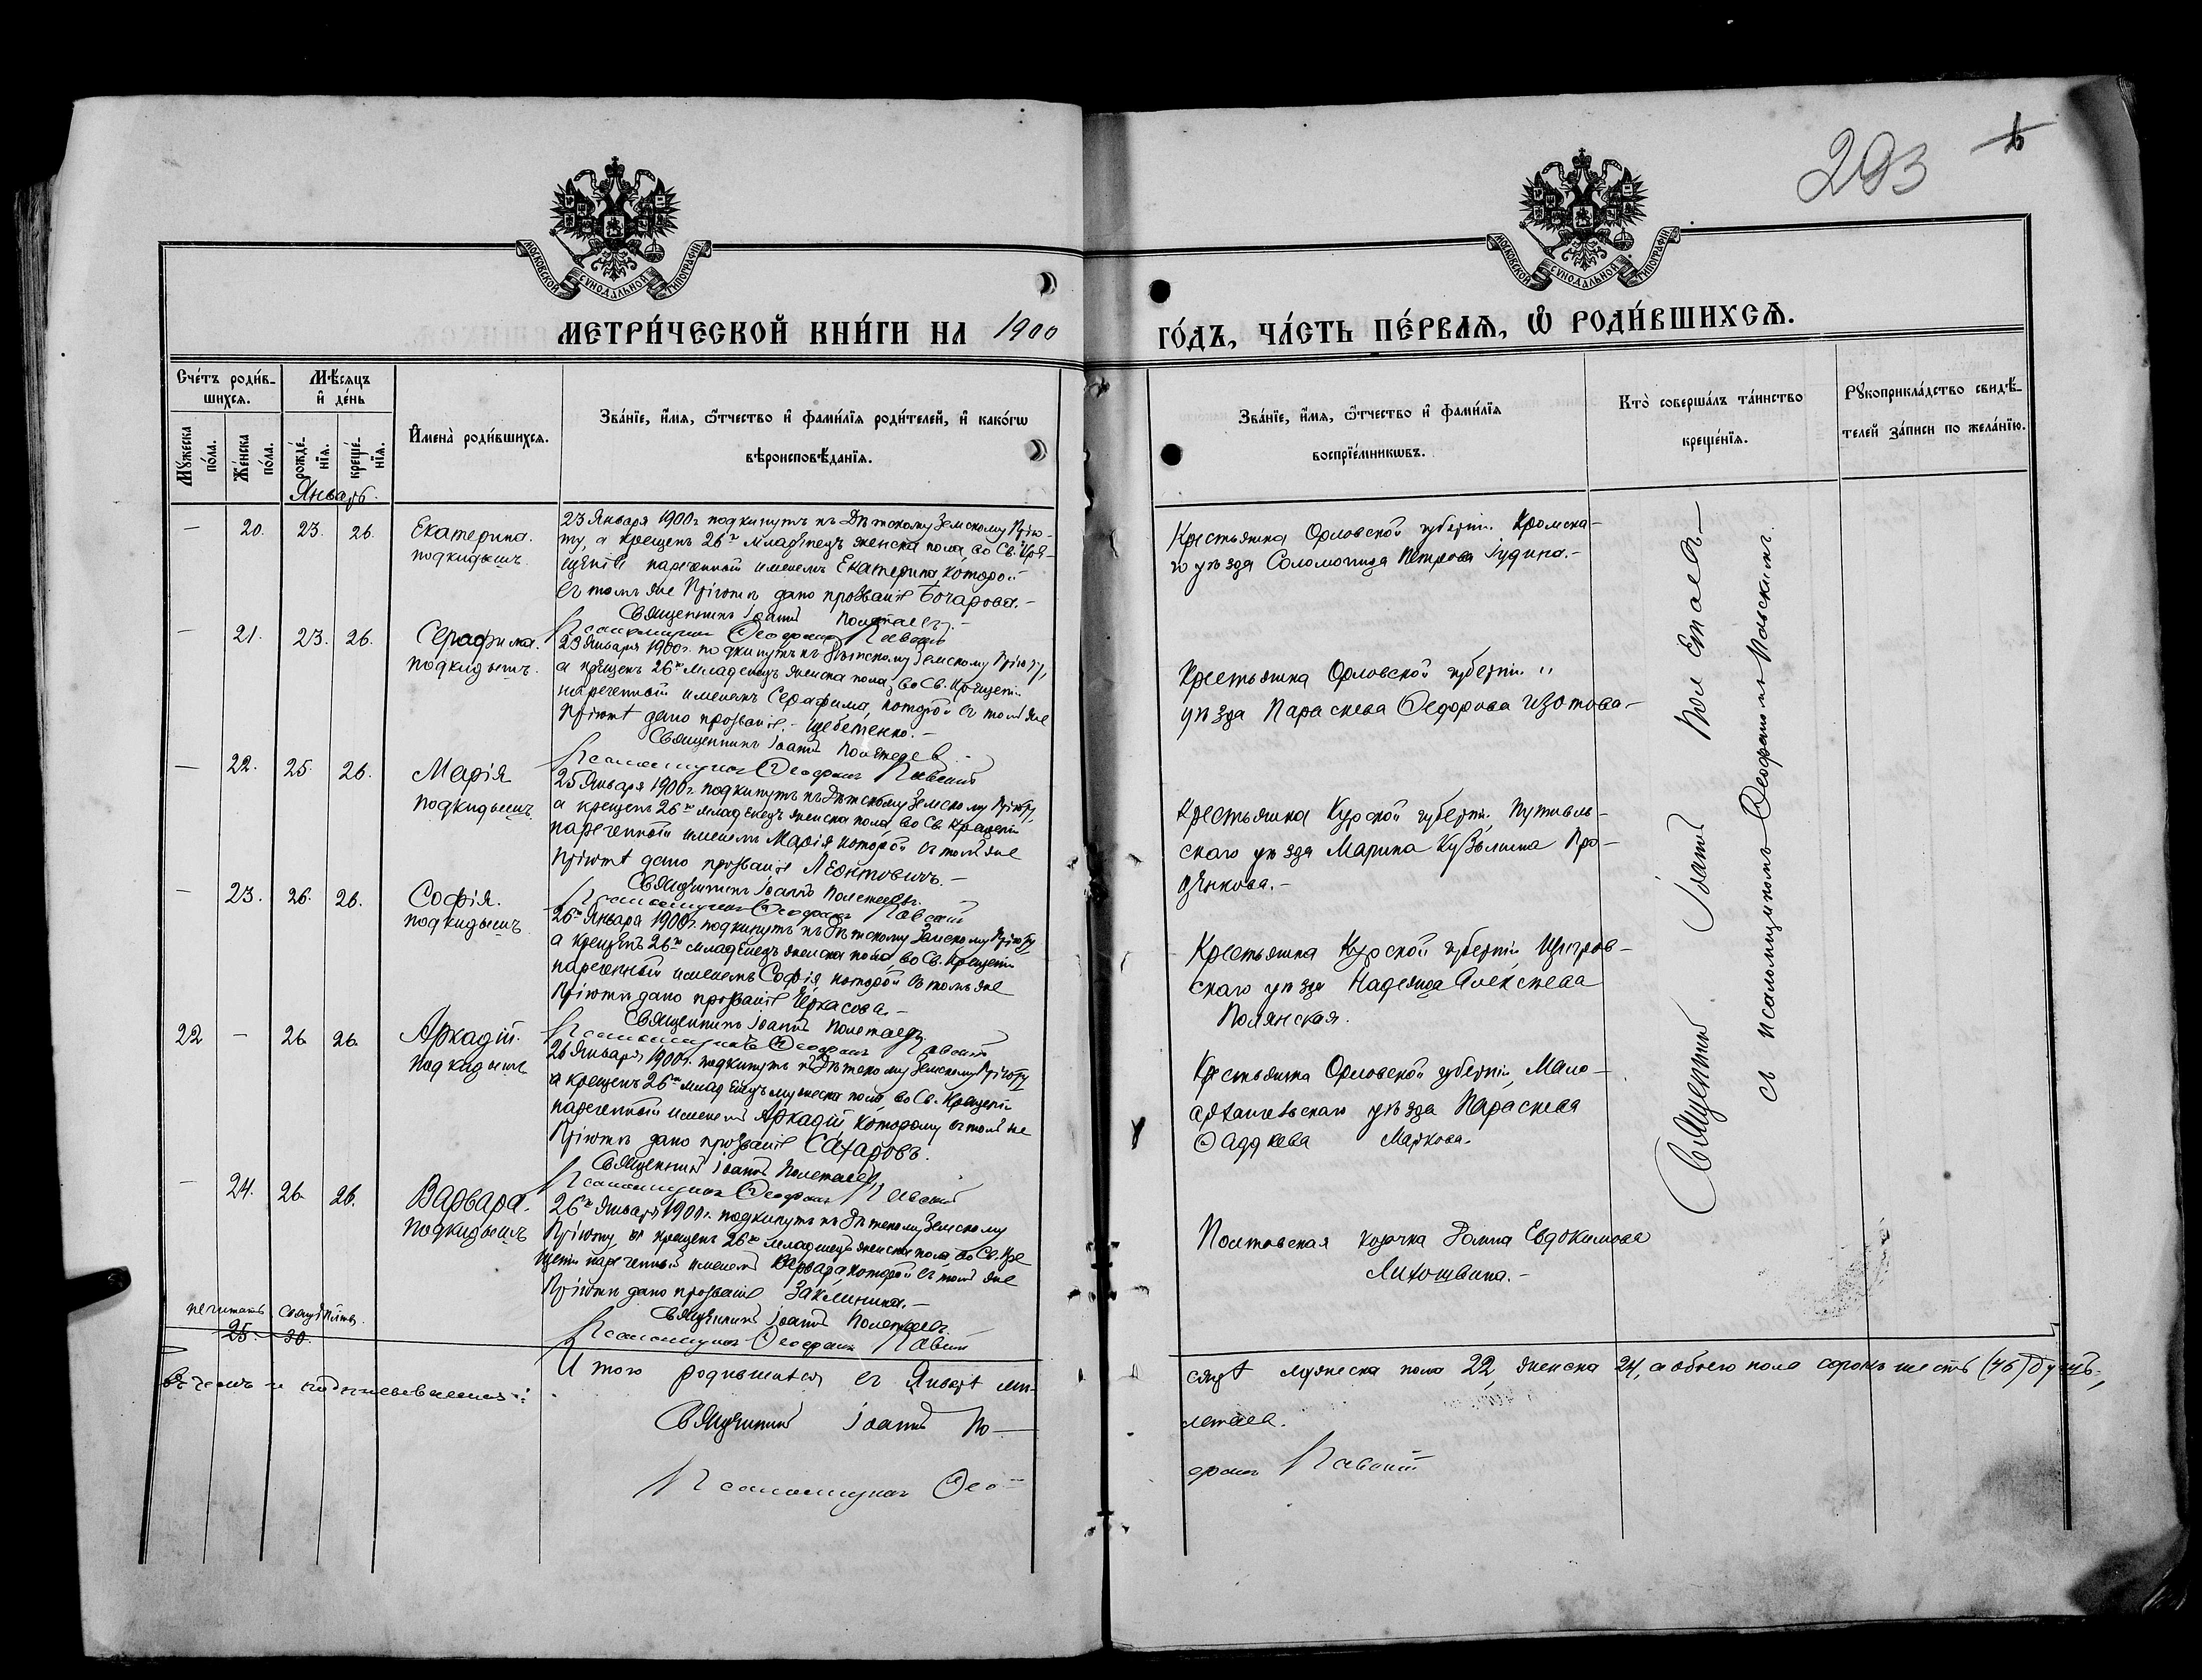 293
МОСКОВСКОЙ СУНОДАЛЬНОЙ ТИПОГРАФІИ
МОСКОВСКОЙ СУНОДАЛЬНОЙ ТИПОГРАФІИ
МЕТРИ́ЧЕСКОЙ КНИ́ГИ НА 1900
ГО́ДЪ, ЧА́СТЬ ПЕ́РВАѦ, Ѿ РОДИ́ВШИХСѦ.
Сче́тъ роди́в-
шихсѧ.
Мѣ́сѧцъ
и҆ де́нь
Мꙋ́жеска
по́ла.
Же́нска
по́ла.
рожде́-
нїѧ.
креще́-
нїѧ.
И҆мена̀ роди́вшихсѧ.
Зва́нїе, и҆́мѧ, ѻ҆́тчество и҆ фами́лїѧ роди́телей, и҆ како́гѡ
вѣроисповѣ́данїѧ.
Зва́нїе, и҆́мѧ, ѻ҆́тчество и҆ фами́лїѧ
воспрїе́мникѡвъ.
Кто̀ соверша́лъ та́инство
креще́нїѧ.
Рꙋкоприкла́дство свидѣ́-
телей за́писи по жела́нїю.
Январь.
— 20. 23. 26.
Екатерина.
подкидышъ
23 Января 1900 г. подкинутъ къ Дѣтскому Земскому Прію-
ту, а крещенъ 26го младенецъ женска пола, во Св. Кре-
щеніи нареченный именемъ Екатерина, которой
въ томъ же Пріютѣ дано прозваніе Бочарова.—
Священникъ Іоаннъ Полетаевъ.—
Псаломщикъ Ѳеофанъ Павскій
Крестьянка Орловской губерніи. Кромска-
го уѣзда Соломонида Петрова Іудина.—
— 21. 23. 26.
Серафима.
подкидышъ.
23 Января 1900 г. подкинутъ къ Дѣтскому Земскому Пріюту,
а крещенъ 26го младенецъ женска пола, во Св. Крещеніи
нареченный именемъ Серафима, которой въ томъ же
Пріютѣ дано прозваніе — Щебетенко.—
Священникъ Іоаннъ Полетаев.—
Псаломщикъ Ѳеофанъ Павскій
Крестьянка Орловской губерніи "
уѣзда Параскева Ѳедорова Изотова—
— 22. 25. 26.
Марія
подкидышъ
25 Января 1900 г. подкинутъ къ Дѣтскому Земскому Пріюту,
а крещенъ 26го младенецъ женска пола во Св. Крещеніи
нареченный именемъ Марія которой въ томъ же
Пріютѣ дано прозваніе Леонтовичъ.—
Священникъ Іоаннъ Полетаевъ.
Псаломщикъ Ѳеофанъ Павскій
Крестьянка Курской губерніи, Путивль-
скаго уѣзда Марина Кузьмина Про-
ценкова.—
— 23. 26. 26.
Софія.
подкидышъ
26го Января 1900 г. подкинутъ къ Дѣтскому Земскому Пріюту
а крещенъ 26го младенецъ женска пола во Св. Крещеніи
нареченный именемъ Софія, которой въ томъ же
Пріютѣ дано прозваніе Черкасова.—
Священникъ Іоаннъ Полетаевъ.
Псаломщикъ Ѳеофанъ Павскій
Крестьянка Курской губерніи Щигров-
скаго уѣзда Надежда Алексѣева
Полянская.
22 — 26. 26.
Аркадій.
подкидышъ
26 Января 1900 г. подкинутъ къ Дѣтскому Земскому Пріюту
а крещенъ 26го младенецъ мужеска пола, во Св. Крещеніи
нареченный именемъ Аркадій которому въ томъ же
Пріютѣ дано прозваніе Сахаровъ.
Священникъ Іоаннъ Полетаевъ
Псаломщикъ Ѳеофанъ Павскій
Крестьянка Орловской губерніи, Мало-
архангельскаго уѣзда Параскева
Ѳаддеева Маркова.
— 24. 26. 26.
Варвара.
подкидышъ
26го Января 1900 г. подкинутъ къ Дѣтскому Земскому
Пріюту, а крещенъ 26го младенецъ женска пола во Св. Кре
щеніи нареченный именемъ Варвара которой въ томъ же
Пріютѣ дано прозваніе Заклинина.—
Священникъ Іоаннъ Полетаевъ.
Псаломщикъ Ѳеофанъ Павскій
Полтавская козачка Ѳеодокимова
Священникъ Іоаннъ Полетаевъ—
съ псаломщикомъ Ѳеофаномъ Павскимъ.
не читать
25. 30.
Итого родившихся въ Январѣ мѣ-
сяцѣ мужеска пола 22, женска 24, а обоего пола сорокъ шесть (46) душъ.
Священникъ Іоаннъ По-
летаев.
Псаломщикъ Ѳео-
фанъ Павскій